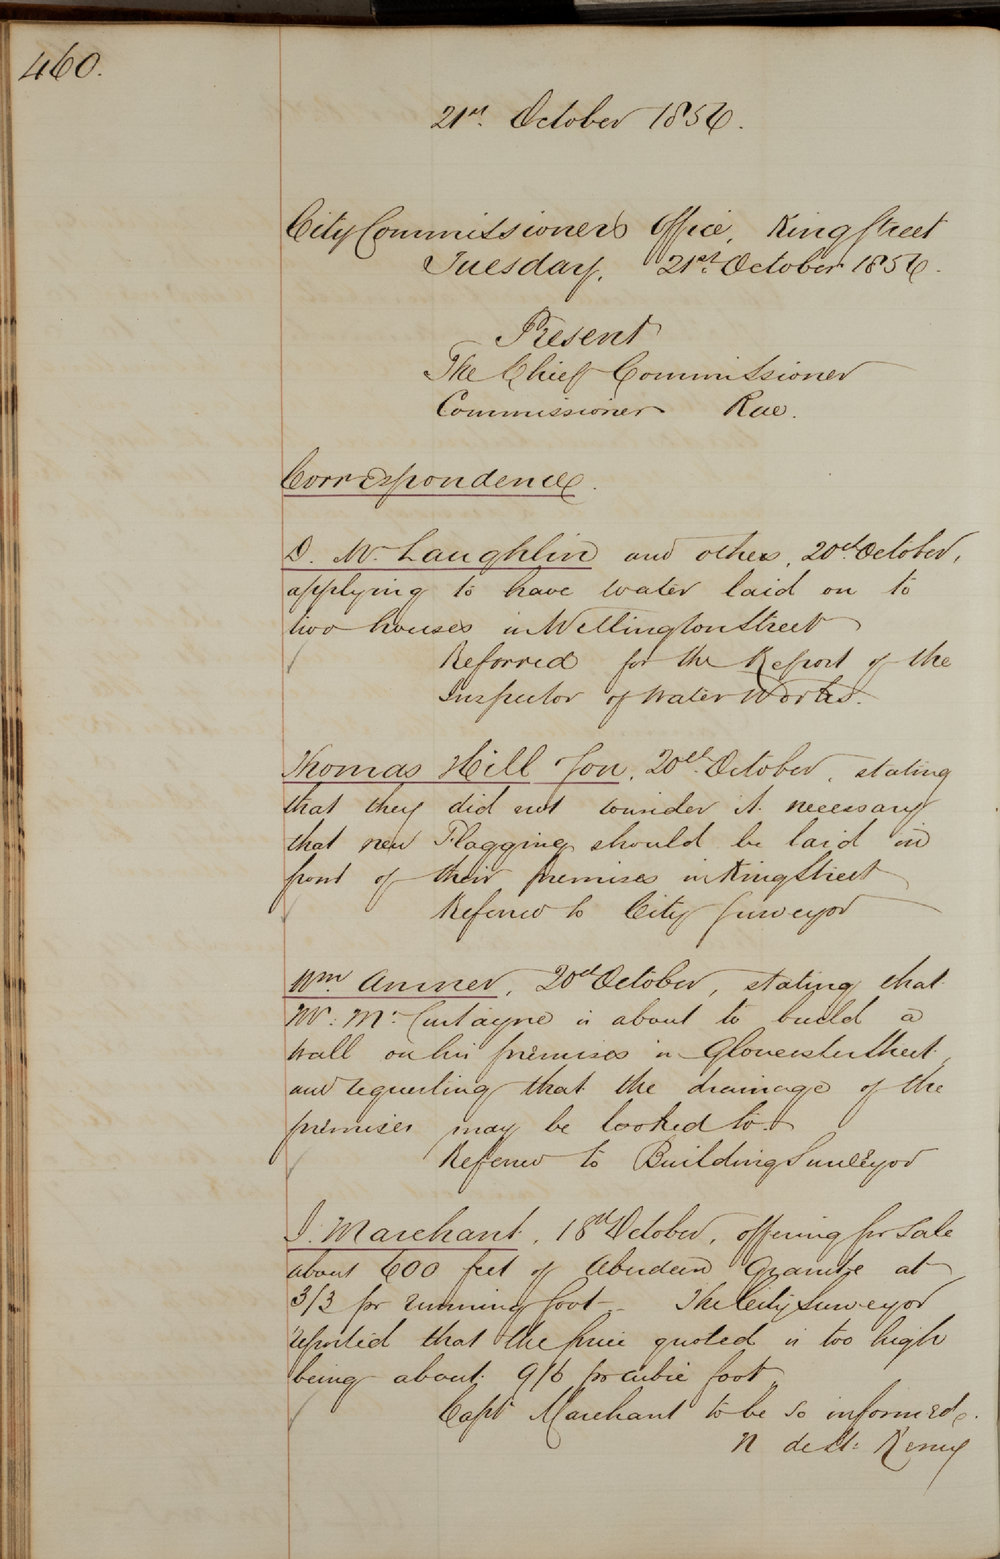 460.
21st. October 1856.
City Commissioners Office, King Street
Tuesday, 21st. October 1856.
Present
The Chief Commissioner
Commissioner Rae.
Correspondence.
D. Mc. Laughlin and others, 20th. October,
applying to have water laid on to
two houses in Wellington Street
Referred for the Report of the
Inspector of Water Works.
Thomas Hill Jon, 20th. October, stating
that they did not consider it necessary
that new Flagging should be laid in
front of their premises in King Street
Referred to City Surveyor
Wm. Amner, 20th October, stating that
Mr: Mc: Curtayne is about to build a
wall on his premises in Gloucester Street,
and requesting that the drainage of the
premises may be looked to.
Referred to Building Surveyor
J. Marchant, 18th October, offering for sale
about 600 feet of Aberdeen Granite at
3/3 pr running foot. The City Surveyor
reported that the price quoted is too high
being about 9/6 pr cubic foot,
Capt Marchant to be so informed.